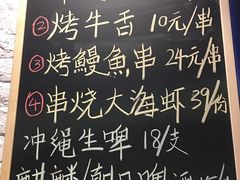 ②烤牛舌 10元/串
③烤鳗魚串 24元/串
④串烧大海虾 39/份
冲绳生啤 18/支
麒麟/朝日啤酒